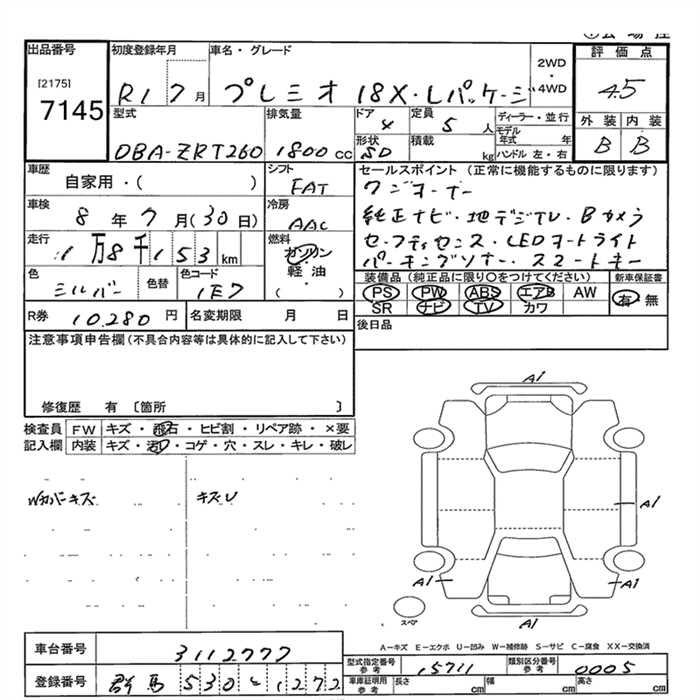 出品番号
[2175]
7145
初度登録年月
R1 7月
車名・グレード
プレミオ 18X・Lパッケージ
2WD
・
4WD
評価点
4.5
外装 内装
B B
型式
DBA-ZRT260
排気量
1800cc
ドア
4
定員
5人
ディーラー・並行
モデル年式 年
ハンドル 左・右
形状
SD
積載
kg
車歴
自家用・( )
シフト
FAT
車検
8年7月(30日)
冷房
AAC
走行
1万8千153km
燃料
ガソリン
・
軽油
( )
色
シルバー
色替
色コード
1E7
セールスポイント(正常に機能するものに限ります)
ワンオーナー
純正ナビ・地デジTV・Bカメラ
セーフティセンス・LEDオートライト
パーキングソナー・スマートキー
装備品(純正品に限り○をつけてください)
新車保証書
PS PW ABS エアB AW
SR ナビ TV カワ
有・無
R券 10,280円
名変期限 月 日
後日品
注意事項申告欄(不具合内容等は具体的に記入して下さい)
修復歴 有〔箇所 〕
検査員記入欄
FW キズ・飛石・ヒビ割・リペア跡・×要
内装 キズ・汚れ・コゲ・穴・スレ・キレ・破レ
Wカバーキズ
キズU
A1
A1
A1
A1
スペア
A-キズ E-エクボ U-凹み W-補修跡 S-サビ C-腐食 XX-交換済
車台番号 3112777
登録番号 群馬530と1272
型式指定番号 参考 15711
類別区分番号 参考 0005
車庫証明用 参考 長さ cm 幅 cm 高さ cm